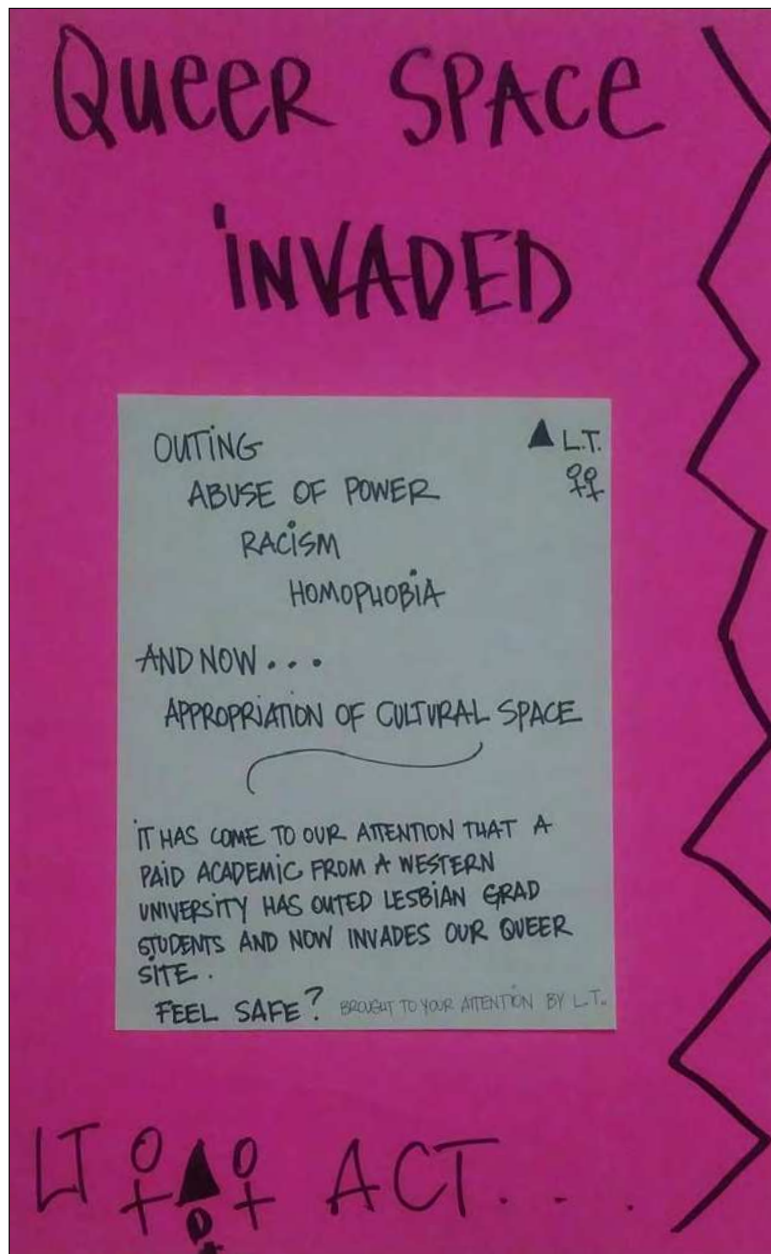 QUEER SPACE
INVADED
OUTING
L.T.
ABUSE OF POWER
RACISM
HOMOPHOBIA
AND NOW...
APPROPRIATION OF CULTURAL SPACE
IT HAS COME TO OUR ATTENTION THAT A
PAID ACADEMIC FROM A WESTERN
UNIVERSITY HAS OUTED LESBIAN GRAD
STUDENTS AND NOW INVADES OUR QUEER
SITE.
FEEL SAFE? BROUGHT TO YOUR ATTENTION BY L.T.
LT ACT...